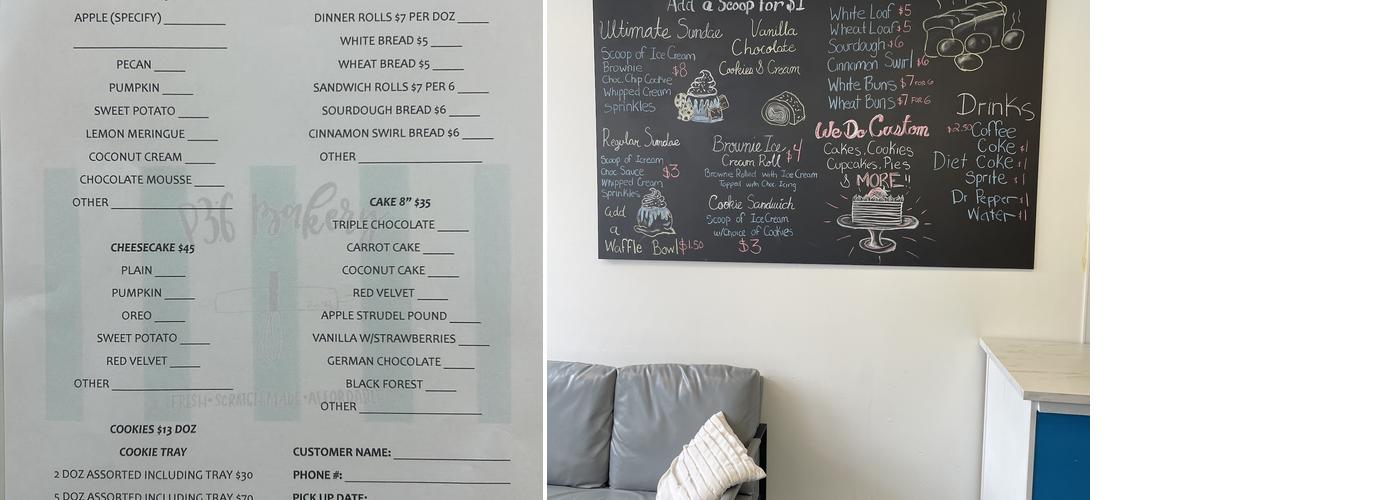 APPLE (SPECIFY)
PECAN
PUMPKIN
SWEET POTATO
LEMON MERINGUE
COCONUT CREAM
CHOCOLATE MOUSSE
OTHER
CHEESECAKE $45
PLAIN
PUMPKIN
OREO
SWEET POTATO
RED VELVET
OTHER
COOKIES $13 DOZ
COOKIE TRAY
2 DOZ ASSORTED INCLUDING TRAY $30
5 DOZ ASSORTED INCLUDING TRAY $70
DINNER ROLLS $7 PER DOZ
WHITE BREAD $5
WHEAT BREAD $5
SANDWICH ROLLS $7 PER 6
SOURDOUGH BREAD $6
CINNAMON SWIRL BREAD $6
OTHER
CAKE 8" $35
TRIPLE CHOCOLATE
CARROT CAKE
COCONUT CAKE
RED VELVET
APPLE STRUDEL POUND
VANILLA W/STRAWBERRIES
GERMAN CHOCOLATE
BLACK FOREST
OTHER
CUSTOMER NAME:
PHONE #:
PICK UP DATE:
P36 Bakery
FRESH•SCRATCH MADE•AFFORDABLE
Add a Scoop for $1
Ultimate Sundae
Scoop of Ice Cream
Brownie
Choc. Chip Cookie
Whipped Cream
Sprinkles
$8
Vanilla
Chocolate
Cookies & Cream
Regular Sundae
Scoop of Icream
Choc Sauce
Whipped Cream
Sprinkles
$3
add
a
Waffle Bowl $1.50
Brownie Ice
Cream Roll $4
Brownie Rolled with Ice Cream
Topped with Choc. Icing
Cookie Sandwich
Scoop of Ice Cream
w/choice of Cookies
$3
White Loaf $5
Wheat Loaf $5
Sourdough $6
Cinnamon Swirl $6
White Buns $7 FOR 6
Wheat Buns $7 FOR 6
We Do Custom
Cakes, Cookies
Cupcakes, Pies
& MORE!!
Drinks
$2.50 Coffee
Coke $1
Diet Coke $1
Sprite $1
Dr Pepper $1
Water $1